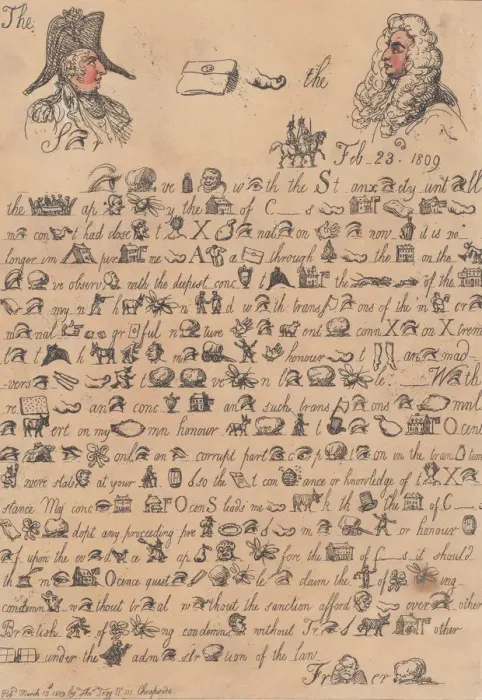 The
the
Feb 23. 1809
ve w th the St anx ety unt ll
the ap y the of C s
m con t had close t X nat on now it is no
longer in me A a through the on the
ve observ with the deepest conc t the the of the
my n h n d w th trans p ons of the m cr
m nal gr ful n ture ent conn X on X trem
t t h m honour t an mad
vers t ve n t le With
re an conc an such trans ons mnl
ert on my mn honour t Ocent
onl on corrupt part c p t on in the tran t on
were slav at your also the t con ance or knowledge of t X
stance My conc OcenS leads me h th the of C
dopt any proceeding pre d m or honour
f upon the ov d ce ap fore the of C s it should
th m Ocence quest le claim the of ing
condemn w thout tr al w thout the sanction afford over other
Br t sh of ng condemn without Tr l other
under the adm str tion of the law
Fr er
Pubd March 13th 1809 by Thos Tegg No 111 Cheapside